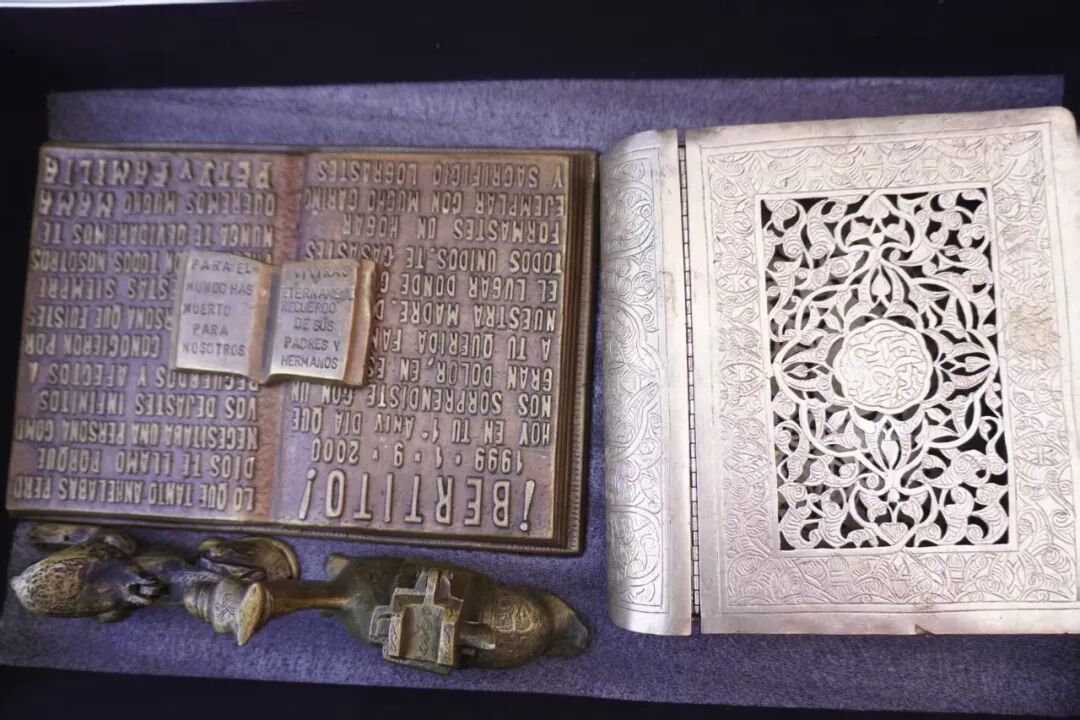 ¡BERTITO!
1999 · 1 · 9 · 2000
HOY EN TU 1º ANIV DÍA QUE
NOS SORPRENDISTE CON UN
GRAN DOLOR, EN
A TU QUERIDA
NUESTRA MADRE.
EL LUGAR DONDE
TODOS UNIDOS. TE CASASTES
FORMASTES UN HOGAR
EJEMPLAR CON MUCHO CARIÑO
Y SACRIFICIO LOGRASTES
LO QUE TANTO ANHELABAS PERO
DIOS TE LLAMO PORQUE
NECESITABA UNA PERSONA COMO
VOS DEJASTES INFINITOS
RECUERDOS Y AFECTOS A
CONOCIERON POR
QUE FUISTES
ESTAS SIEMPRE
DE TODOS NOSOTROS
NUNCA TE OLVIDAREMOS TE
QUEREMOS MUCHO MAMA
PETY Y FAMILIA
PARA EL
MUNDO HAS
MUERTO
PARA
NOSOTROS
VIVIRAS
RECUERDO
DE SUS
PADRES Y
HERMANOS